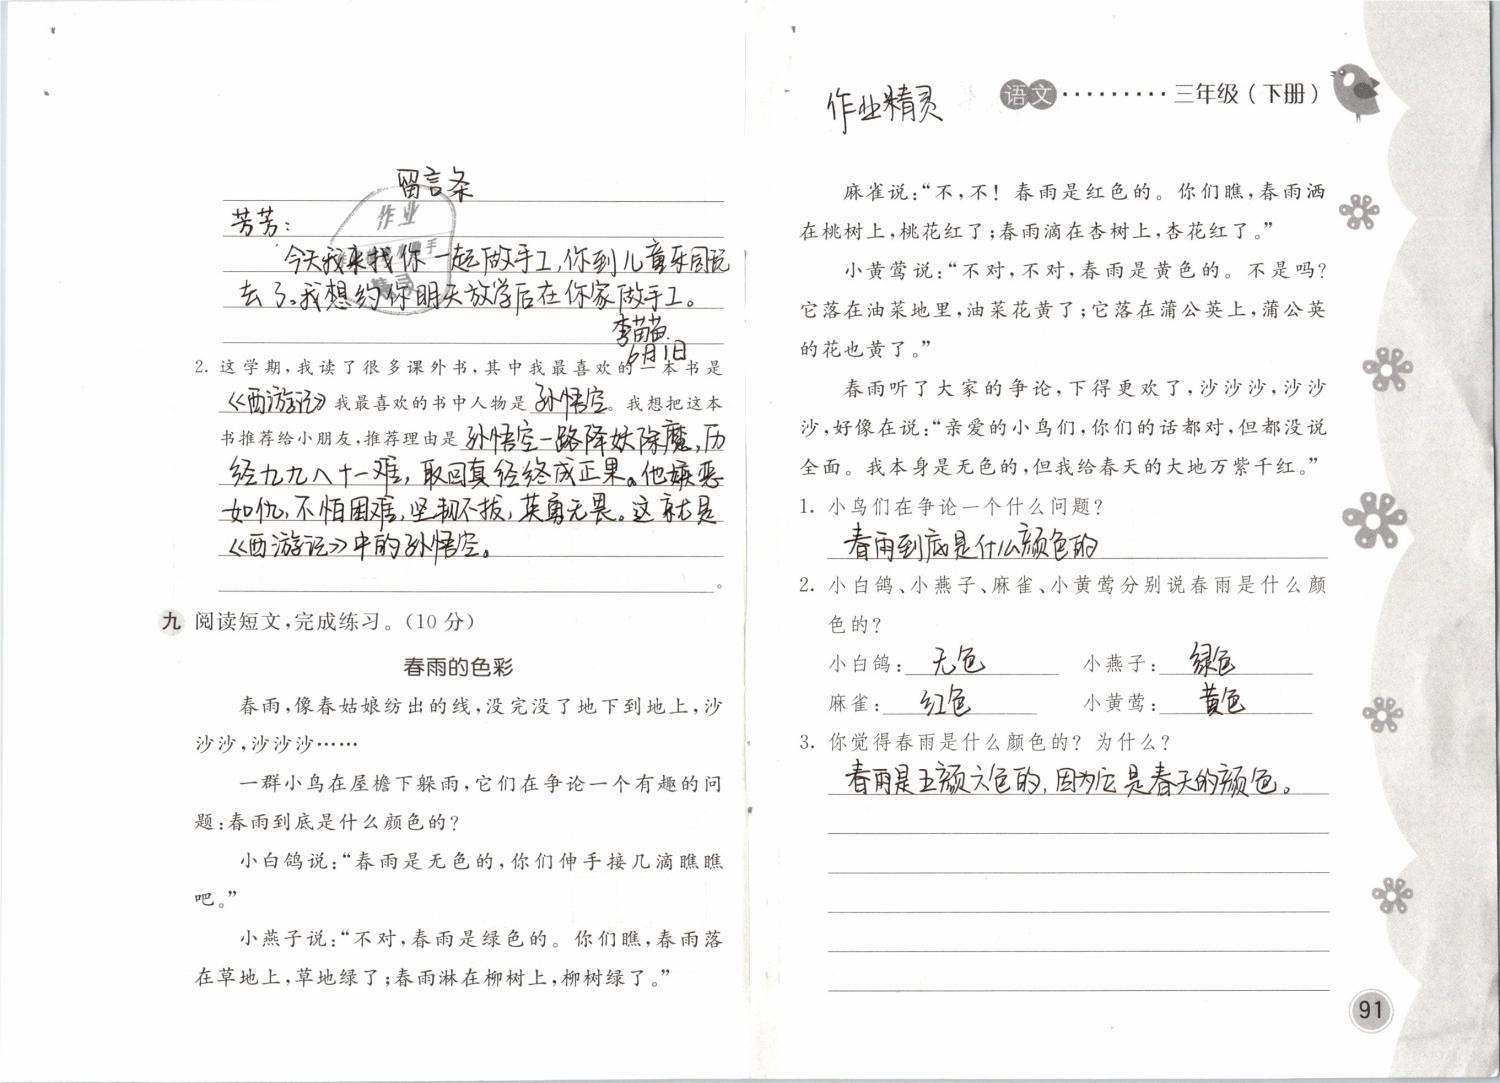 留言条
芳芳：
今天我来找你一起做手工，你到儿童乐园玩
去了。我想约你明天放学后在你家做手工。
李苗苗
6月1日
2. 这学期，我读了很多课外书，其中我最喜欢的一本书是
《西游记》我最喜欢的书中人物是 孙悟空。我想把这本
书推荐给小朋友，推荐理由是 孙悟空一路降妖除魔，历
经九九八十一难，取回真经终成正果。他嫉恶
如仇，不怕困难，坚韧不拔，英勇无畏。这就是
《西游记》中的孙悟空。
。
九 阅读短文，完成练习。（10 分）
春雨的色彩
春雨，像春姑娘纺出的线，没完没了地下到地上，沙
沙沙，沙沙沙……
一群小鸟在屋檐下躲雨，它们在争论一个有趣的问
题：春雨到底是什么颜色的？
小白鸽说：“春雨是无色的，你们伸手接几滴瞧瞧
吧。”
小燕子说：“不对，春雨是绿色的。你们瞧，春雨落
在草地上，草地绿了；春雨淋在柳树上，柳树绿了。”
作业
精灵
作业精灵
语文·········三年级（下册）
麻雀说：“不，不！春雨是红色的。你们瞧，春雨洒
在桃树上，桃花红了；春雨滴在杏树上，杏花红了。”
小黄莺说：“不对，不对，春雨是黄色的。不是吗？
它落在油菜地里，油菜花黄了；它落在蒲公英上，蒲公英
的花也黄了。”
春雨听了大家的争论，下得更欢了，沙沙沙，沙沙
沙，好像在说：“亲爱的小鸟们，你们的话都对，但都没说
全面。我本身是无色的，但我给春天的大地万紫千红。”
1. 小鸟们在争论一个什么问题？
春雨到底是什么颜色的
2. 小白鸽、小燕子、麻雀、小黄莺分别说春雨是什么颜
色的？
小白鸽： 无色 小燕子： 绿色
麻雀： 红色 小黄莺： 黄色
3. 你觉得春雨是什么颜色的？为什么？
春雨是五颜六色的，因为它是春天的颜色。
91